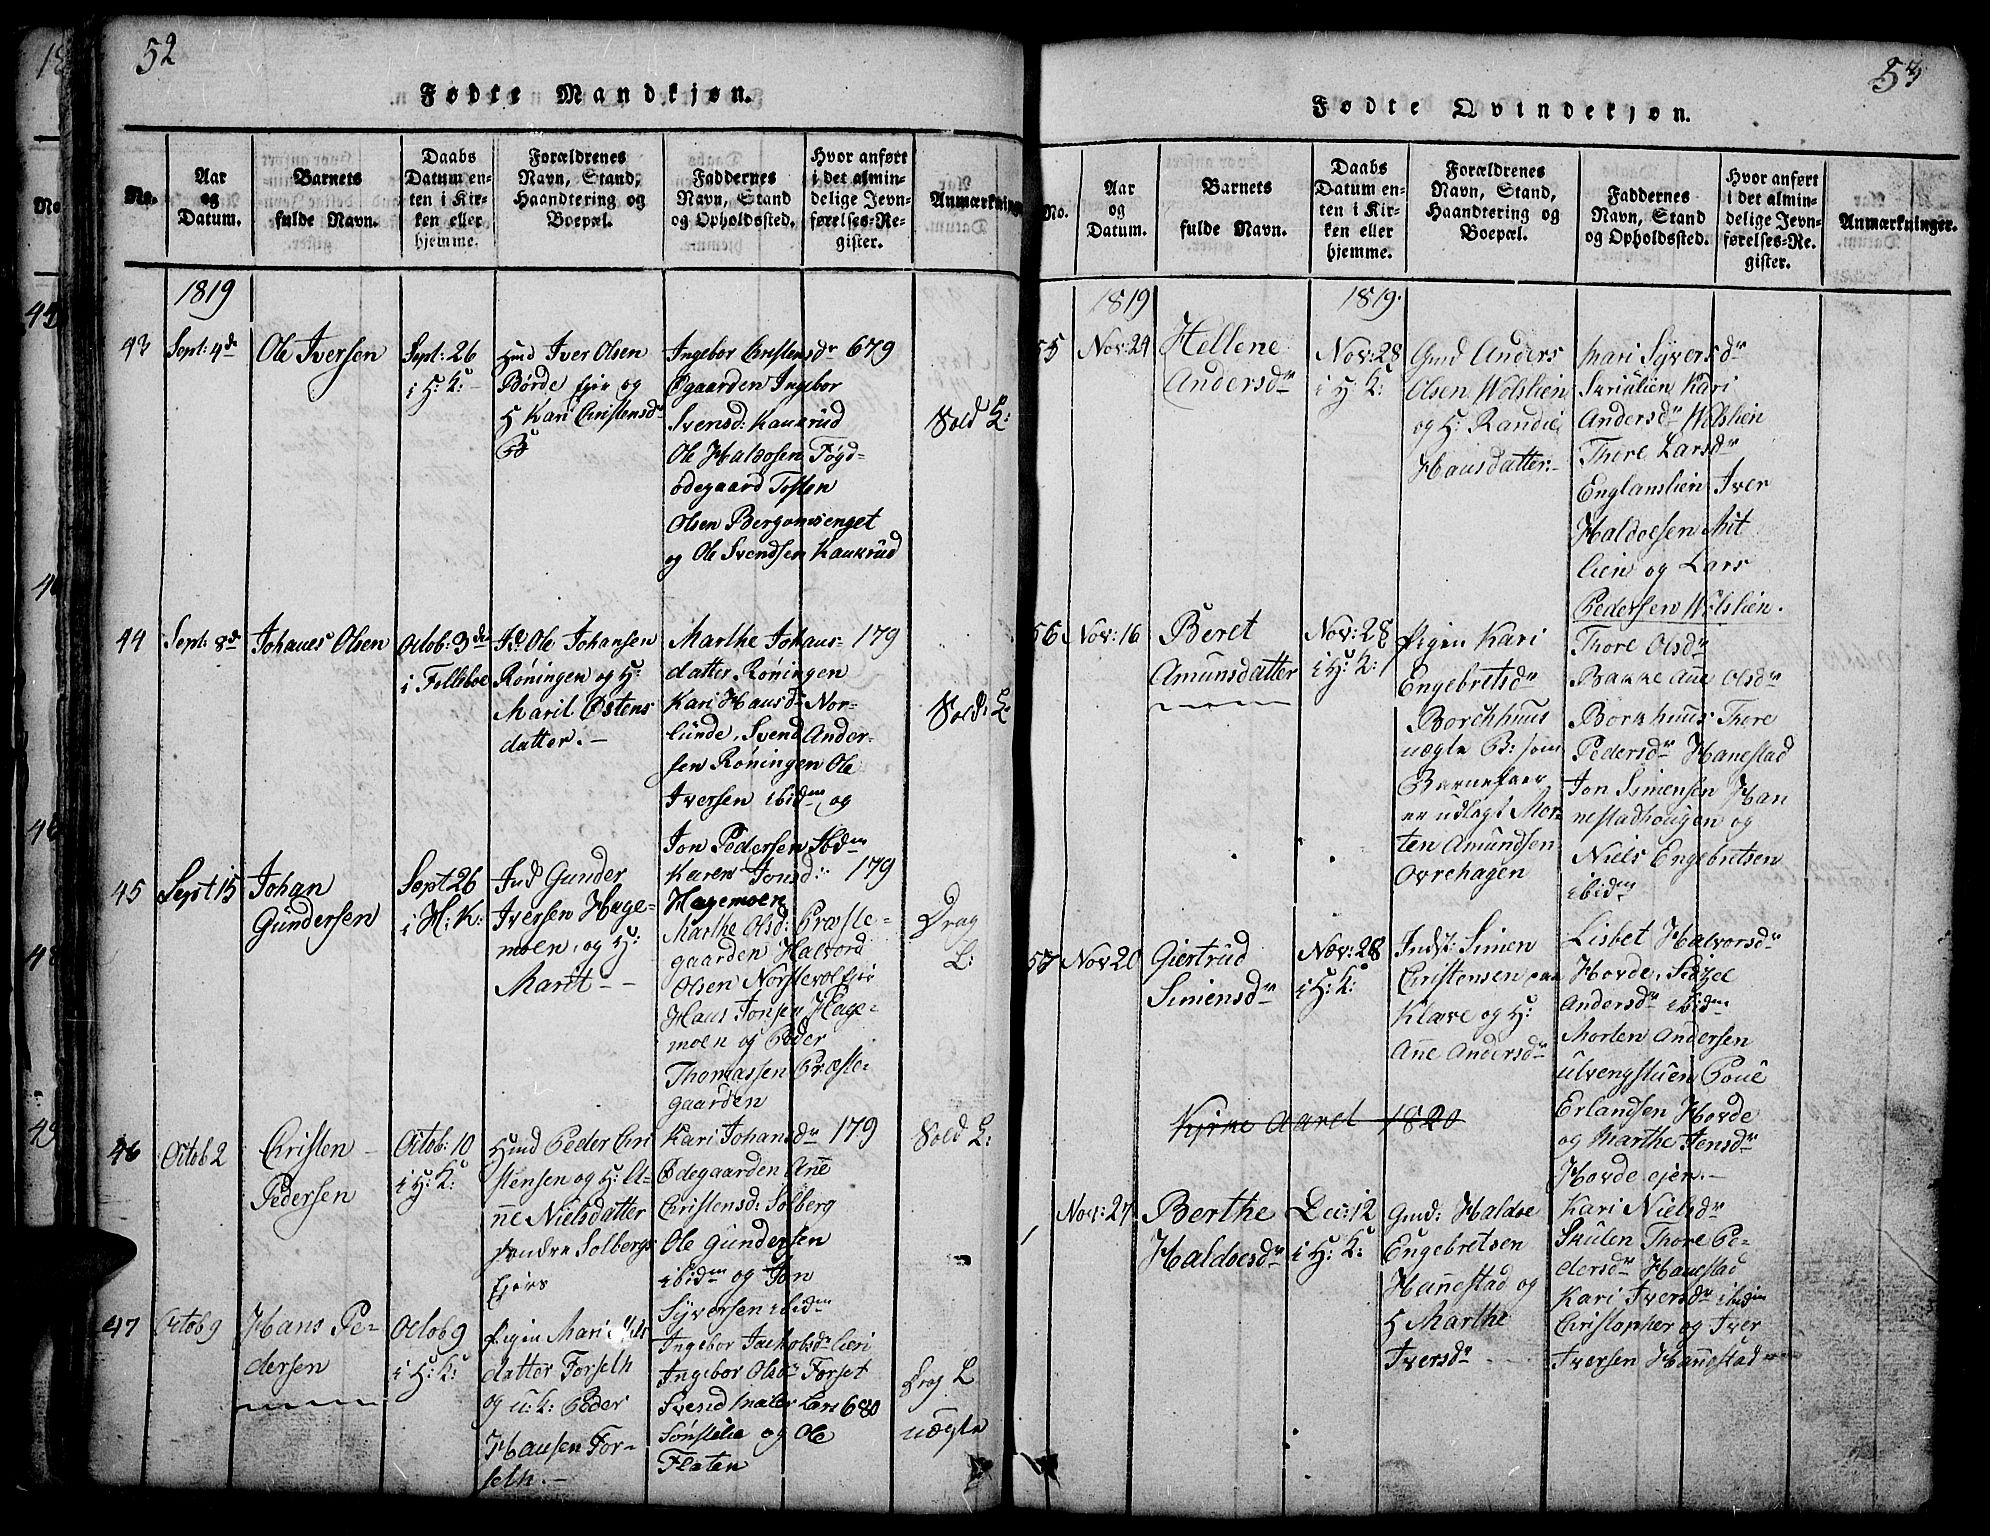 52
Fødte Mandkjøn.
No.
Aar
og
Datum.
Barnets
fulde Navn.
Daabs
Datum en-
ten i Kir-
ken eller
hjemme.
Forældrenes
Navn, Stand,
Haandtering og
Boepæl.
Faddernes
Navn, Stand
og Opholdssted.
Hvor anført
i det almin-
delige Jevn-
førelses-Re-
gister.
Anmærkning
1819
43
Sept: 4de
Ole Iversen
Sept: 26
i H: K:
Huusmd Iver Olsen
Børde Ejer og
H Kari Christensdr
Ingebor Christensdr 679
Øgaarden Ingebor
Svensd: Kaukrud
Ole Haldosen Føyd-
ødegaard Tosten
Olsen Bergomsenget
og Ole Svendsen Kaukrud
Sold L:
44
Sept: 8de
Johanes Olsen
Octob: 3de
i Filleboe
Ole Johansen
Røningen og H:
Marit Østens
datter. –
Marthe Johans- 179
datter Røningen
Kari Hansd: Nor-
lunde, Svend Ander-
sen Røningen Ole
Iversen ibidm og
Jon Pedersen Ibdm
Sold: L
45
Sept 15
Johan
Gundersen
Sept 26
i H: K:
Ind Gunder
Iversen Hage-
moen, og H:
Marit – –
Karen Jonsd: 179
Hagemoen
Marthe Olsd: Præste-
gaarden Halvord
Olsen Norstevolleie
Hans Jonsen Hage-
moen og Peder
Thomassen Præste-
gaarden
Drag
L:
46
Octob 2
Christen
Pedersen
Octob: 10
i H: K:
Huusmd Peder Chri
stensen og H: A-
ne Nielsdatter
søndre Solbergs
Ejers
Kari Johansdr 179
Ødegaarden Ane
Christensd: Solberg
Ole Gundersen
ibidm og Jon
Syversen ibidm
Sold L:
47
Octob 9
Hans Pe-
dersen
Octob 9
i H: K:
Pigen Mari Niels
datter Forseth
og u: k: Peder
Hansen For-
seth. –
Ingebor Jachobsdr Lieri
Ingebor Olsdr Forset
Svend Lars 680
Sønstelie og Ole
Flaten
Drag L
uægte
53
Fødte Qvindekjøn.
No.
Aar
og
Datum.
Barnets
fulde Navn.
Daabs
Datum en-
ten i Kir-
ken eller
hjemme.
Forældrenes
Navn, Stand,
Haandtering og
Boepæl.
Faddernes
Navn, Stand
og Opholdssted.
Hvor anført
i det almin-
delige Jevn-
førelses-Re-
gister.
Anmærkninger.
1819
1819
55
Nov: 24
Hellene
Andersdr
Nov: 28
i H: K:
Gmd Anders
Olsen Wolslien
og H: Randie
Hansdatter. –
Mari Syversdr
Suralien Kari
Andersdr Wolslien
Thore Larsdr
Englanslien Iver
Haldoesen Mit
lien og Lars
Pedersen Wolslien.
56
Nov: 16
Beret
Amunsdatter
Nov: 28
i H: K:
Pigen Kari
Engebretsdr
Borchhuus
uægte B: som
Barnefaer
er udlagt Mor-
ten Amundsen
Ovrehagen
Thore Olsdr
Bakke Ane Olsdr
Borkhuus Thore
Pedersdr Hanestad
Jon Simensen Han
nestadhougen og
Niels Engebretsen
ibidm
57
Nov 20
Giertrud
Simensdr
Nov: 28
i H: K:
Inds: Simen
Christensen paa
Klæve og H:
Ane Andersdr
Lisbet Halvorsdr
Hovde, Sidzel
Andersdr ibidm
Morten Andersen
Ulvengstuen Poue
Erlandsen Hovde
og Marthe Jensdr
Hovde ejen. –
Kirke Aaret 1820
1
Nov: 27
Berthe
Haldoesdr
Dec: 12
i H: K:
Gmd: Haldoe
Engebretsen
Hannestad og
H Marthe
Iversdr
Kari Nielsdr
Skulen Thore Pe-
dersdr Hanestad
Kari Iversdr ibidm
Christopher og Iver
Iversen Hannestad